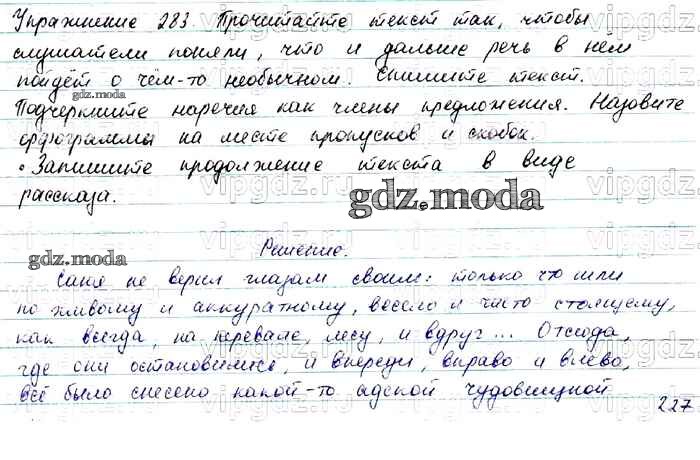 Упражнение 283. Прочитайте текст так, чтобы
слушатели поняли, что и дальше речь в нём
пойдёт о чём-то необычном. Спишите текст.
Подчеркните наречия как члены предложения. Назовите
орфограммы на месте пропусков и скобок.
• Запишите продолжение текста в виде
рассказа.
gdz.moda
gdz.moda
Решение.
gdz.moda
Саня не верил глазам своим: только что шли
по живому и аккуратному, весело и чисто стоящему,
как всегда, на перевале, лесу, и вдруг... Отсюда,
где они остановились, и впереди, вправо и влево,
всё было снесено какой-то адской чудовищной
227
vipgdz.ru